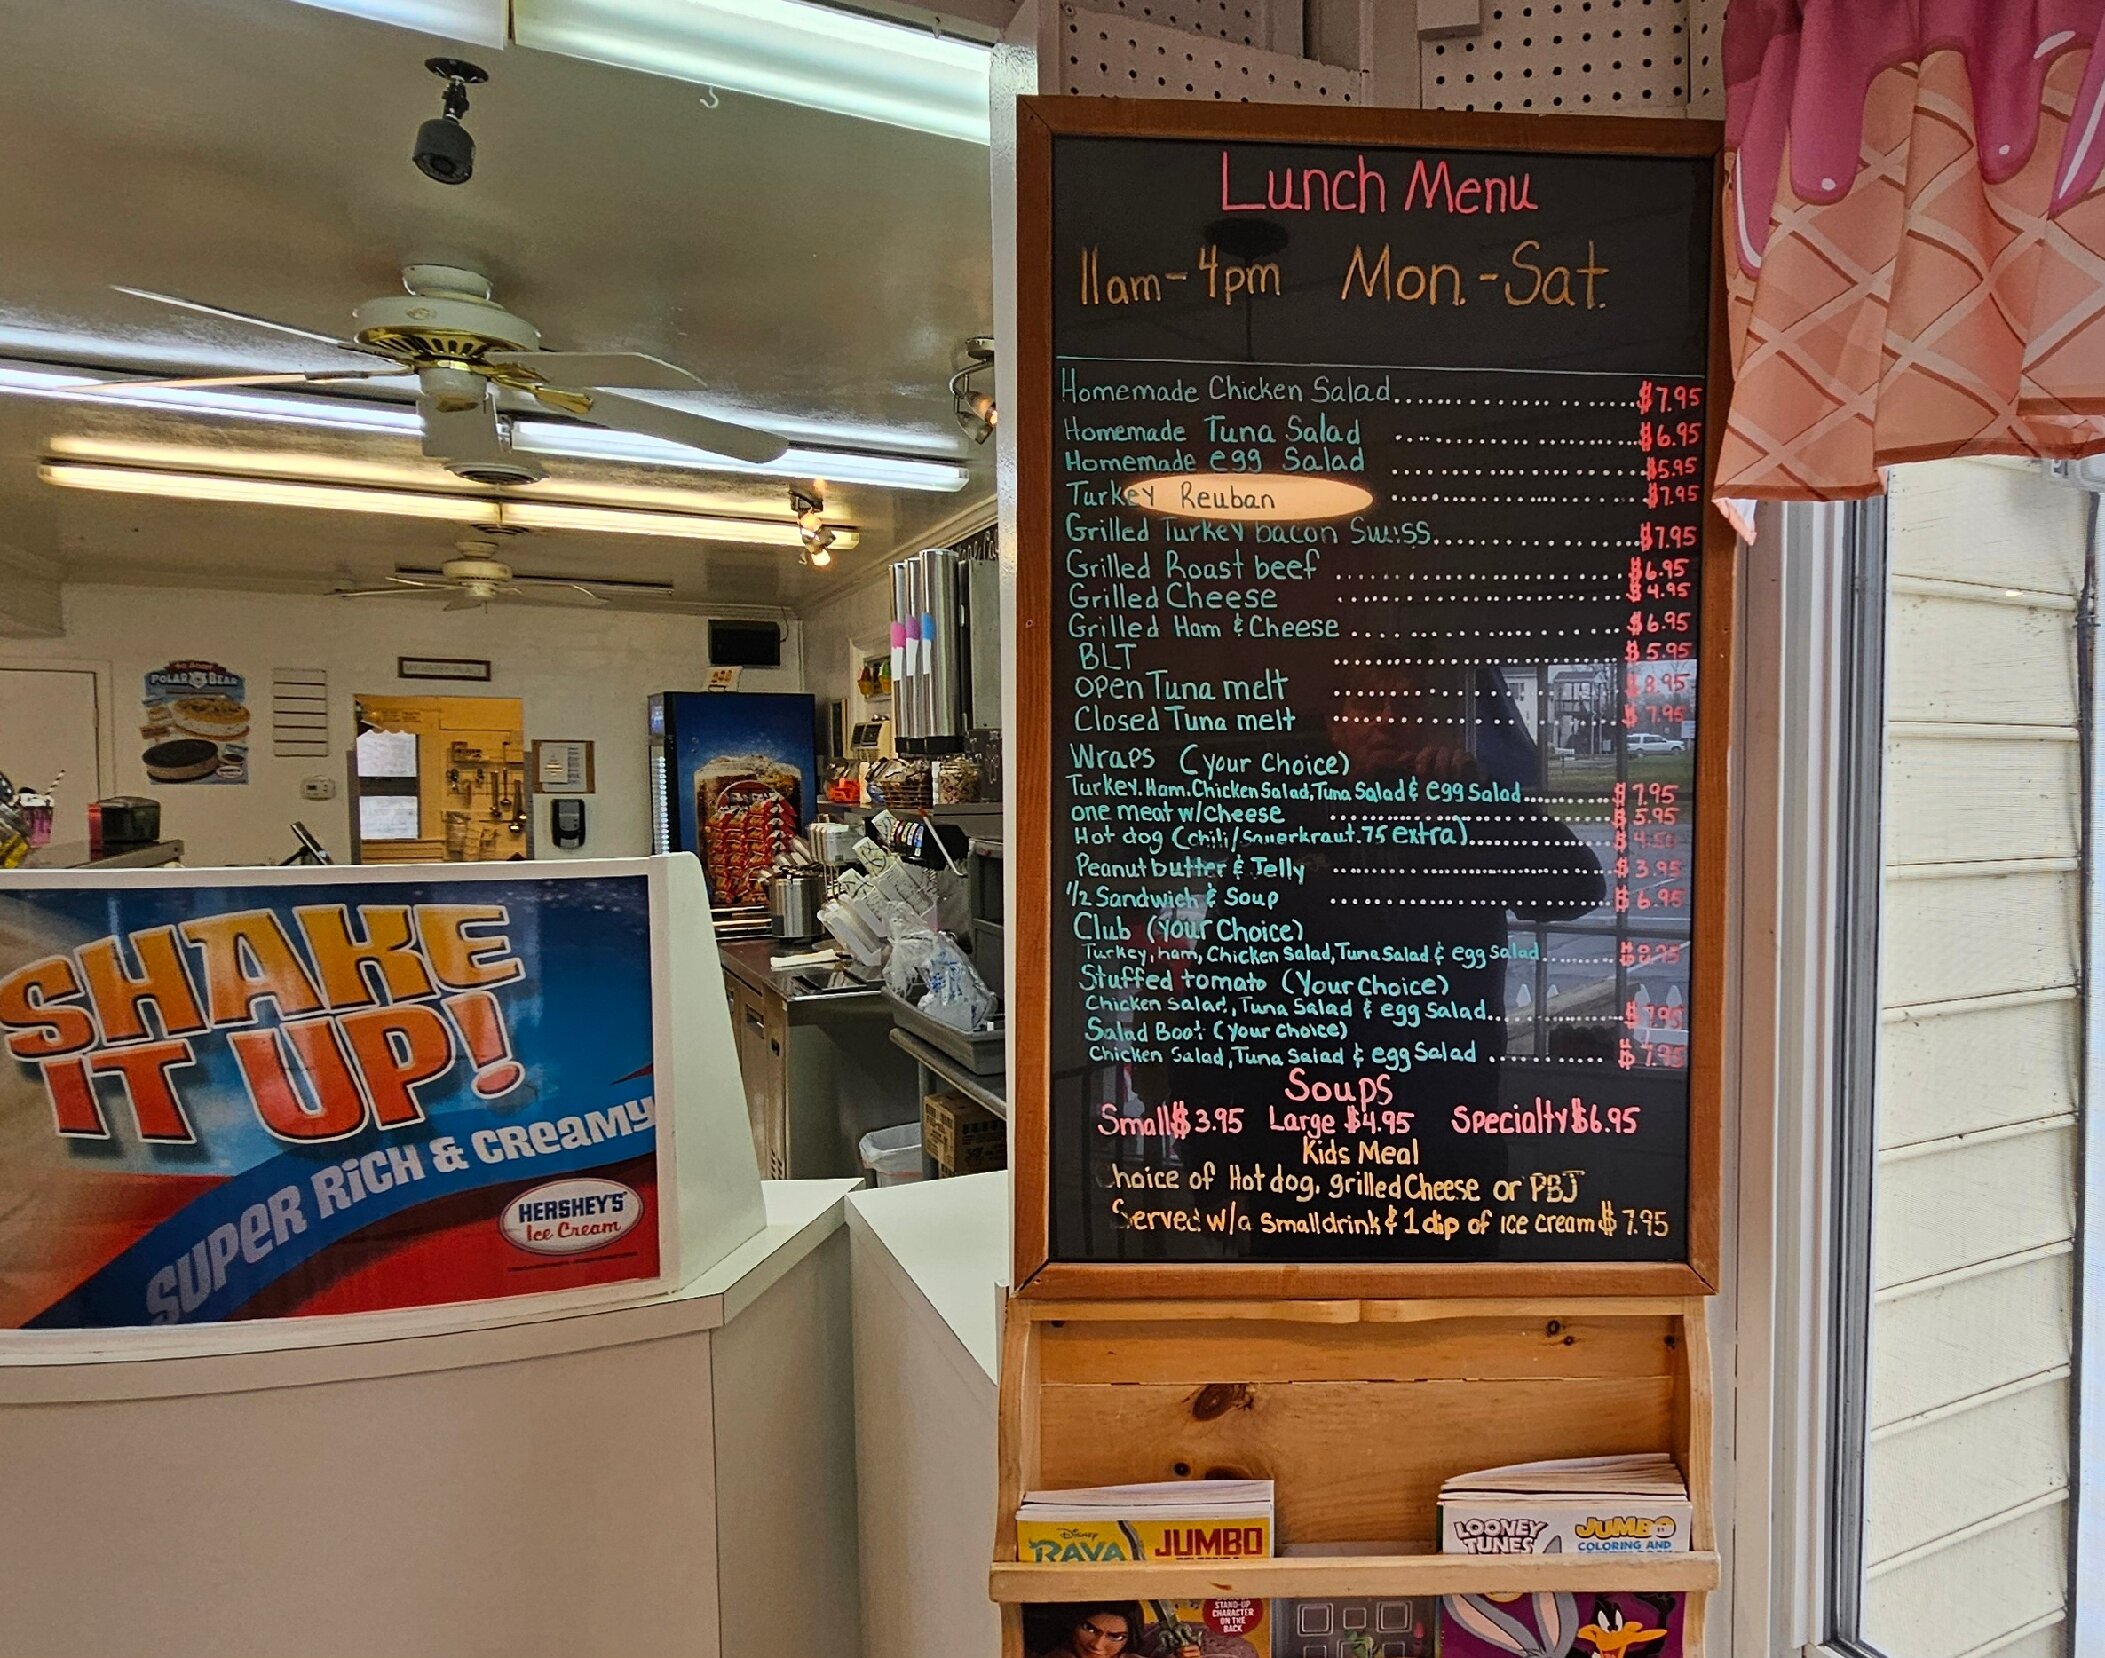 Lunch Menu
11am-4pm Mon.-Sat.
Homemade Chicken Salad.................$7.95
Homemade Tuna Salad .................$6.95
Homemade egg Salad .................$5.95
Turkey Reuban .................$7.95
Grilled Turkey bacon Swiss.................$7.95
Grilled Roast beef .................$6.95
Grilled Cheese .................$4.95
Grilled Ham & Cheese .................$6.95
BLT .................$5.95
Open Tuna melt .................$8.95
Closed Tuna melt .................$7.95
Wraps (your choice)
Turkey, Ham, Chicken Salad, Tuna Salad & egg Salad..........$7.95
one meat w/cheese .................$5.95
Hot dog (chili/Sauerkraut .75 extra).................$4.50
Peanut butter & Jelly .................$3.95
1/2 Sandwich & Soup .................$6.95
Club (your Choice)
Turkey, ham, Chicken Salad, Tuna Salad & egg Salad.......$8.95
Stuffed tomato (Your Choice)
Chicken Salad, Tuna Salad & egg Salad.................$7.95
Salad Boat (Your Choice)
Chicken Salad, Tuna Salad & egg Salad ..........$7.95
Soups
Small $3.95 Large $4.95 Specialty $6.95
Kids Meal
Choice of Hot dog, grilled Cheese or PBJ
Served w/a small drink & 1 dip of ice cream $7.95
POLAR BEAR
SHAKE
IT UP!
SUPER RICH & CREAMY
HERSHEY'S
Ice Cream
Disney
RAYA
JUMBO
LOONEY
TUNES
JUMBO
COLORING AND
STAND-UP
CHARACTER
ON THE
BACK